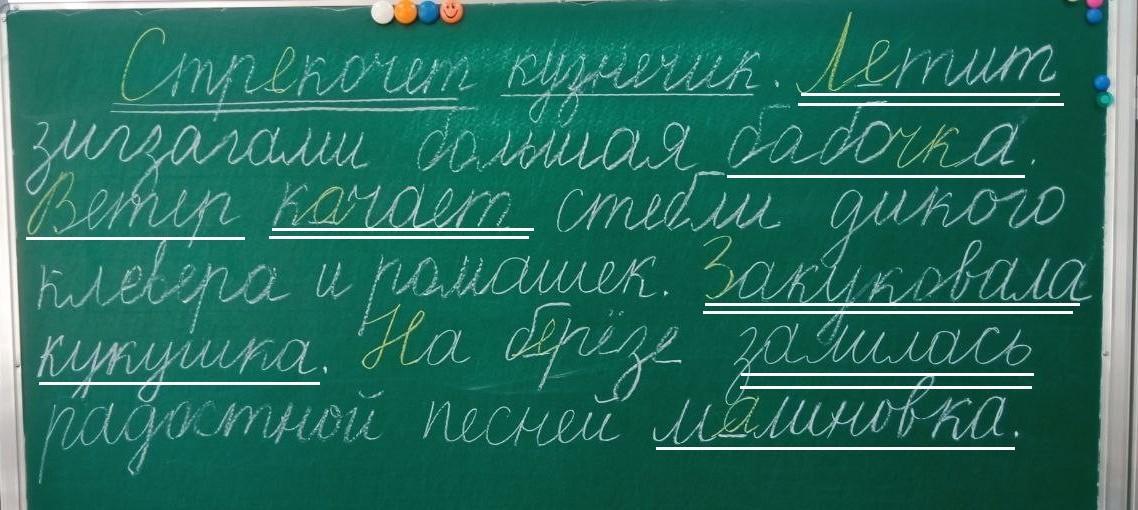 Стрекочет кузнечик. Летит
зигзагами большая бабочка.
Ветер качает стебли дикого
клевера и ромашек. Закуковала
кукушка. На берёзе залилась
радостной песней малиновка.